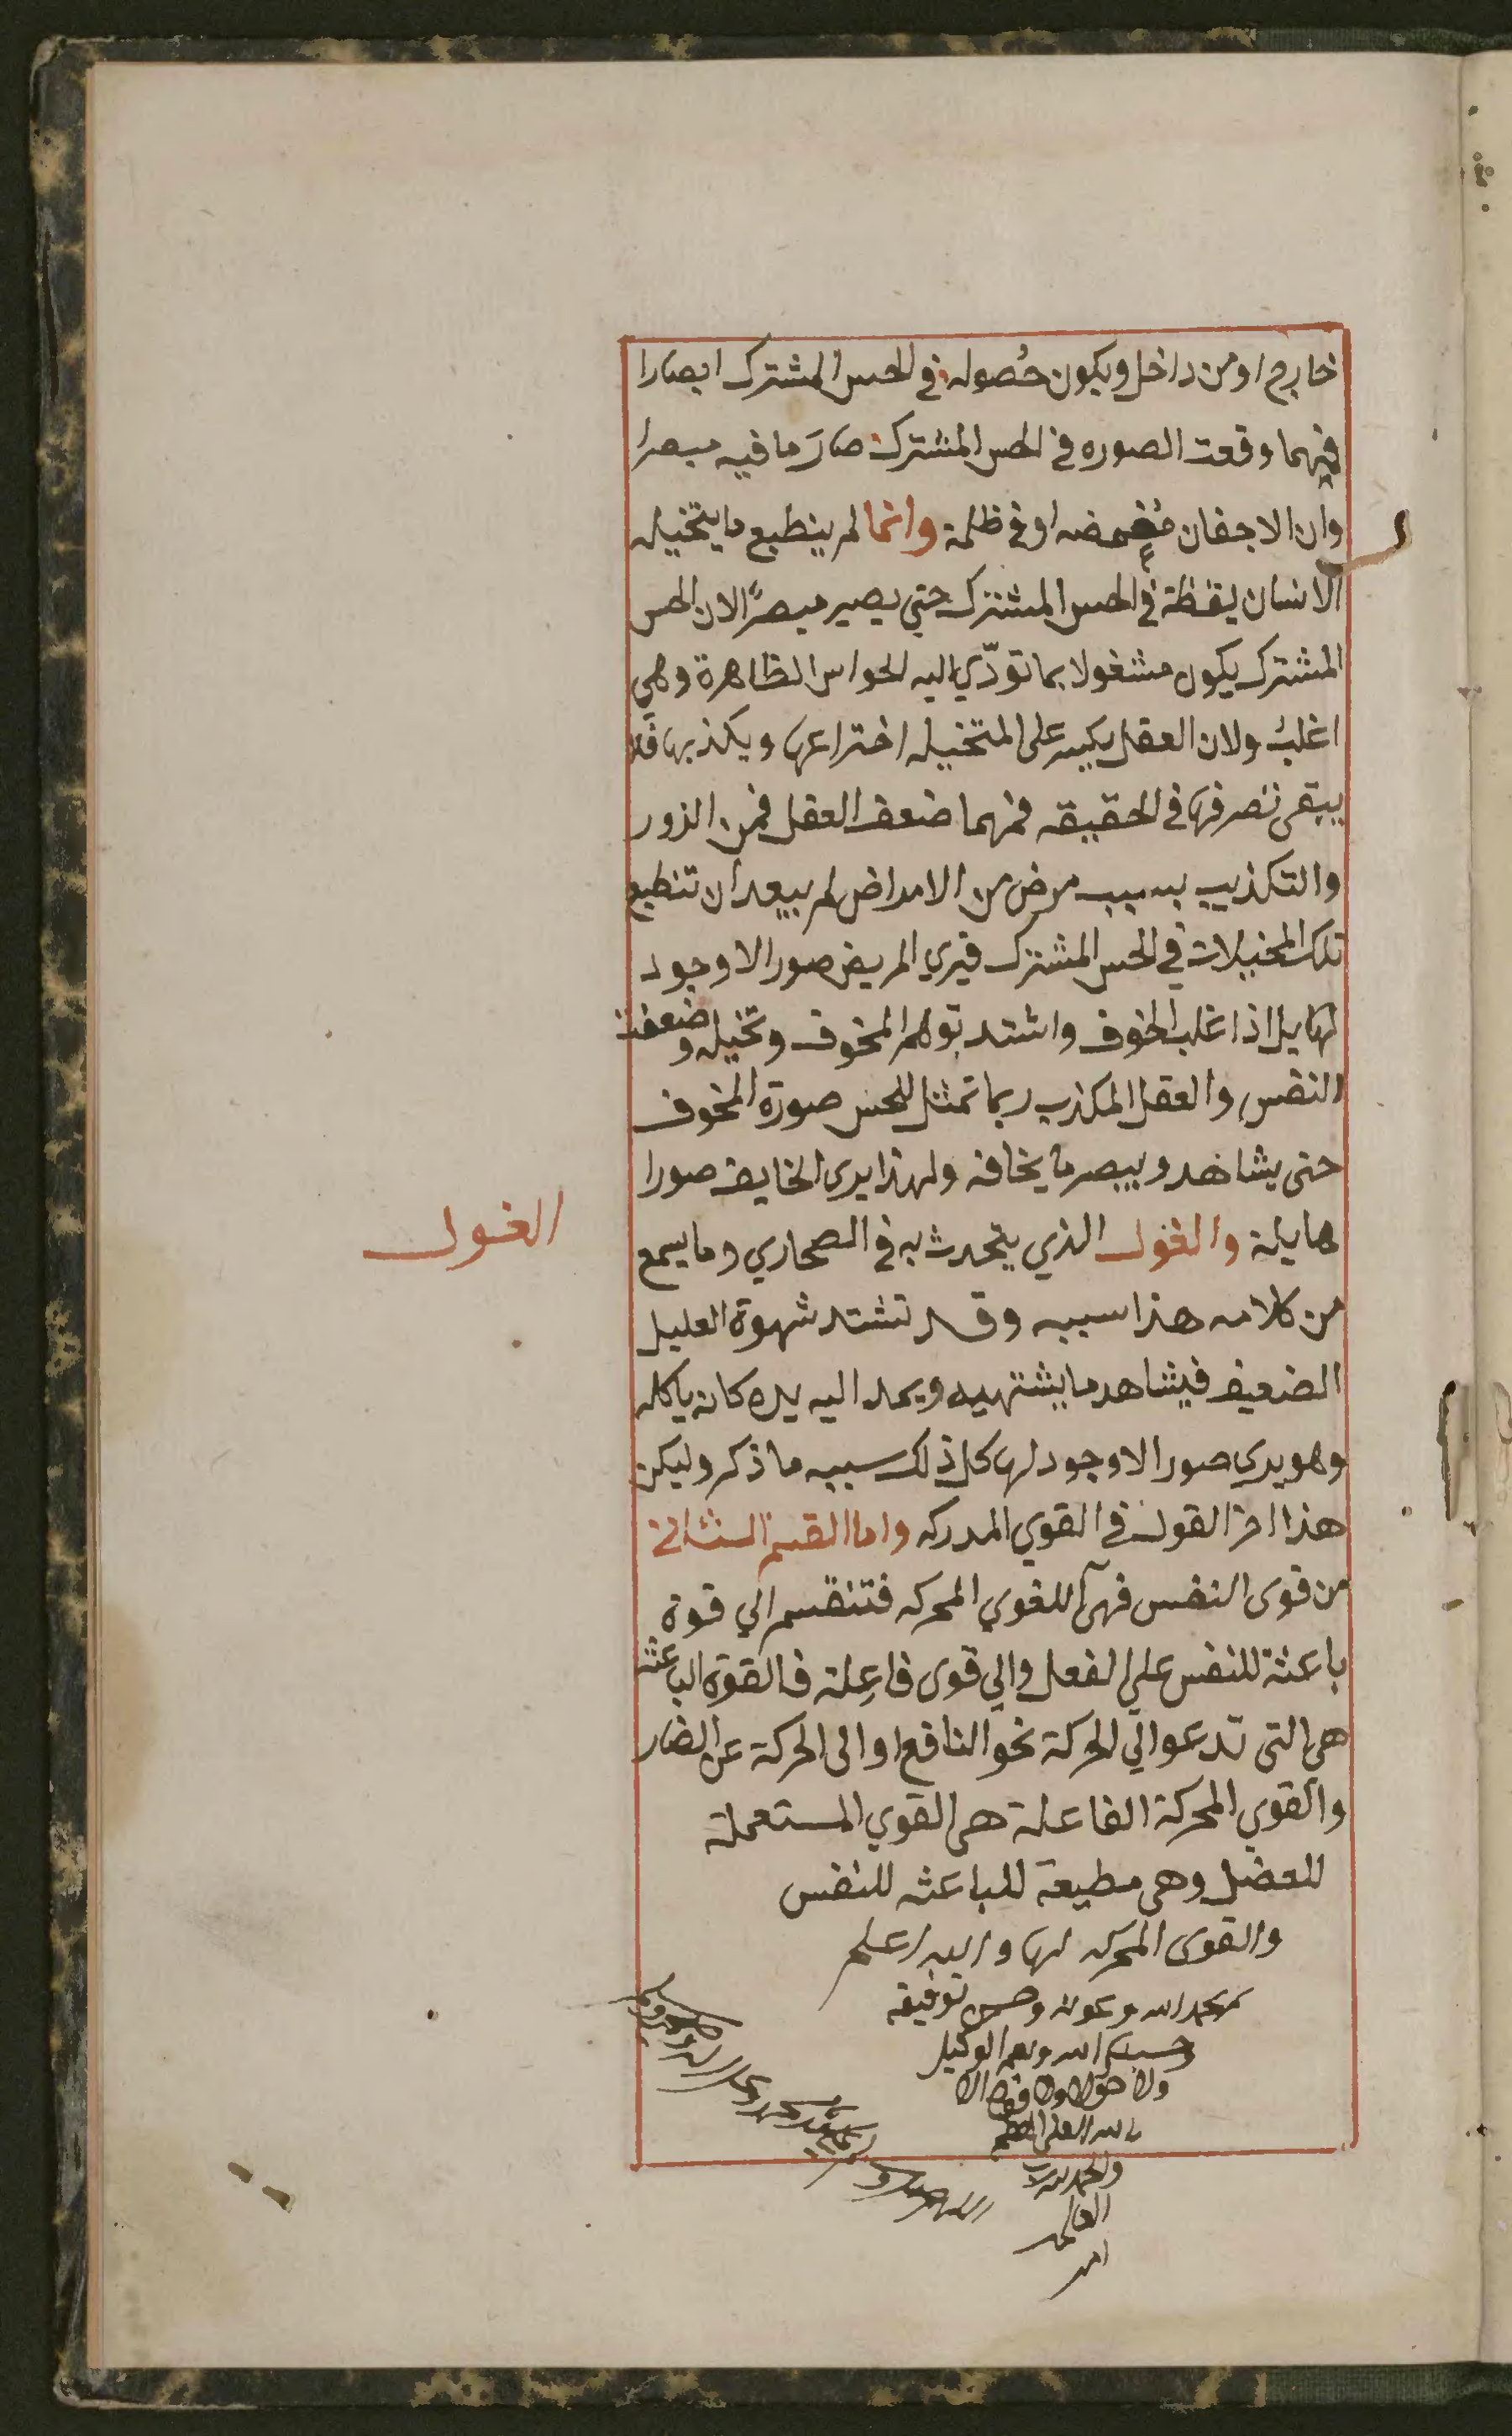 خارج او من داخل ويكون حُصوله في الحس المشترك ابصارا
فمهما وقعت الصوره في الحس المشترك صارَ ما فيه مبصرا
وان الاجفان مُغمضه او في ظلمة وانما لم ينطبع ما يتخيله
الانسان يقظة في الحس المشترك حتي يصير مبصرًا لان الحس
المشترك يكون مشغولا بما تودّي اليه الحواس الظاهرة وهي
اغلبُ ولان العقل يكسر على المتخيله اختراعها ويكذبها فلا
يبقى تصرفها في الحقيقه فمهما ضعف العقل فمن الزور
والتكذيب بسبب مرض من الامراض لم يبعد ان تنطبع
تلك المخيلات في الحس المشترك فيري المريض صورا لا وجود
لها بل اذا غلب الخوف واشتد توهم المخوف وتخيله وضعفت
النفس والعقل المكذب ربما تمثل للحس صورة المخوف
حتى يشاهد ويبصر ما يخافه ولهذا يرى الخايف صورا
هايلة والغول الذي يتحدث به في الصحاري وما يسمع
الغول
من كلامه هذا سببه وقد تشتد شهوة العليل
الضعيف فيشاهد ما يشتهيه ويمد اليه يده كانه ياكله
وهو يري صورا لا وجود لها كل ذلك سببه ما ذكر وليكن
هذا اخر القول في القوي المدركه واما القسم الثاني
من قوى النفس فهي القوي المحركه فتنقسم الي قوة
باعثة للنفس علي الفعل والي قوى فاعِلة فالقوة الباعثه
هي التي تدعو الي الحركة نحو النافع او الى الحركة عن الضار
والقوي المحركة الفاعلة هى القوي المستعملة
للعضل وهى مطيعة للباعثه للنفس
والقوى المحركه لها والله اعلم
تم بحمد الله وعونه وحسن توفيقه
وحسبنا الله ونعم الوكيل
ولا حول ولا قوه الا
بالله العلى العظيم
والحمد لله رب
العالمين
امين